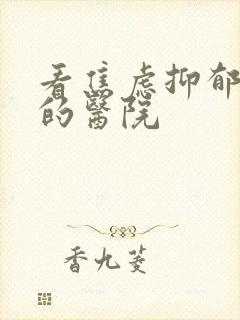 看焦虑抑郁
的醫院
香九菱